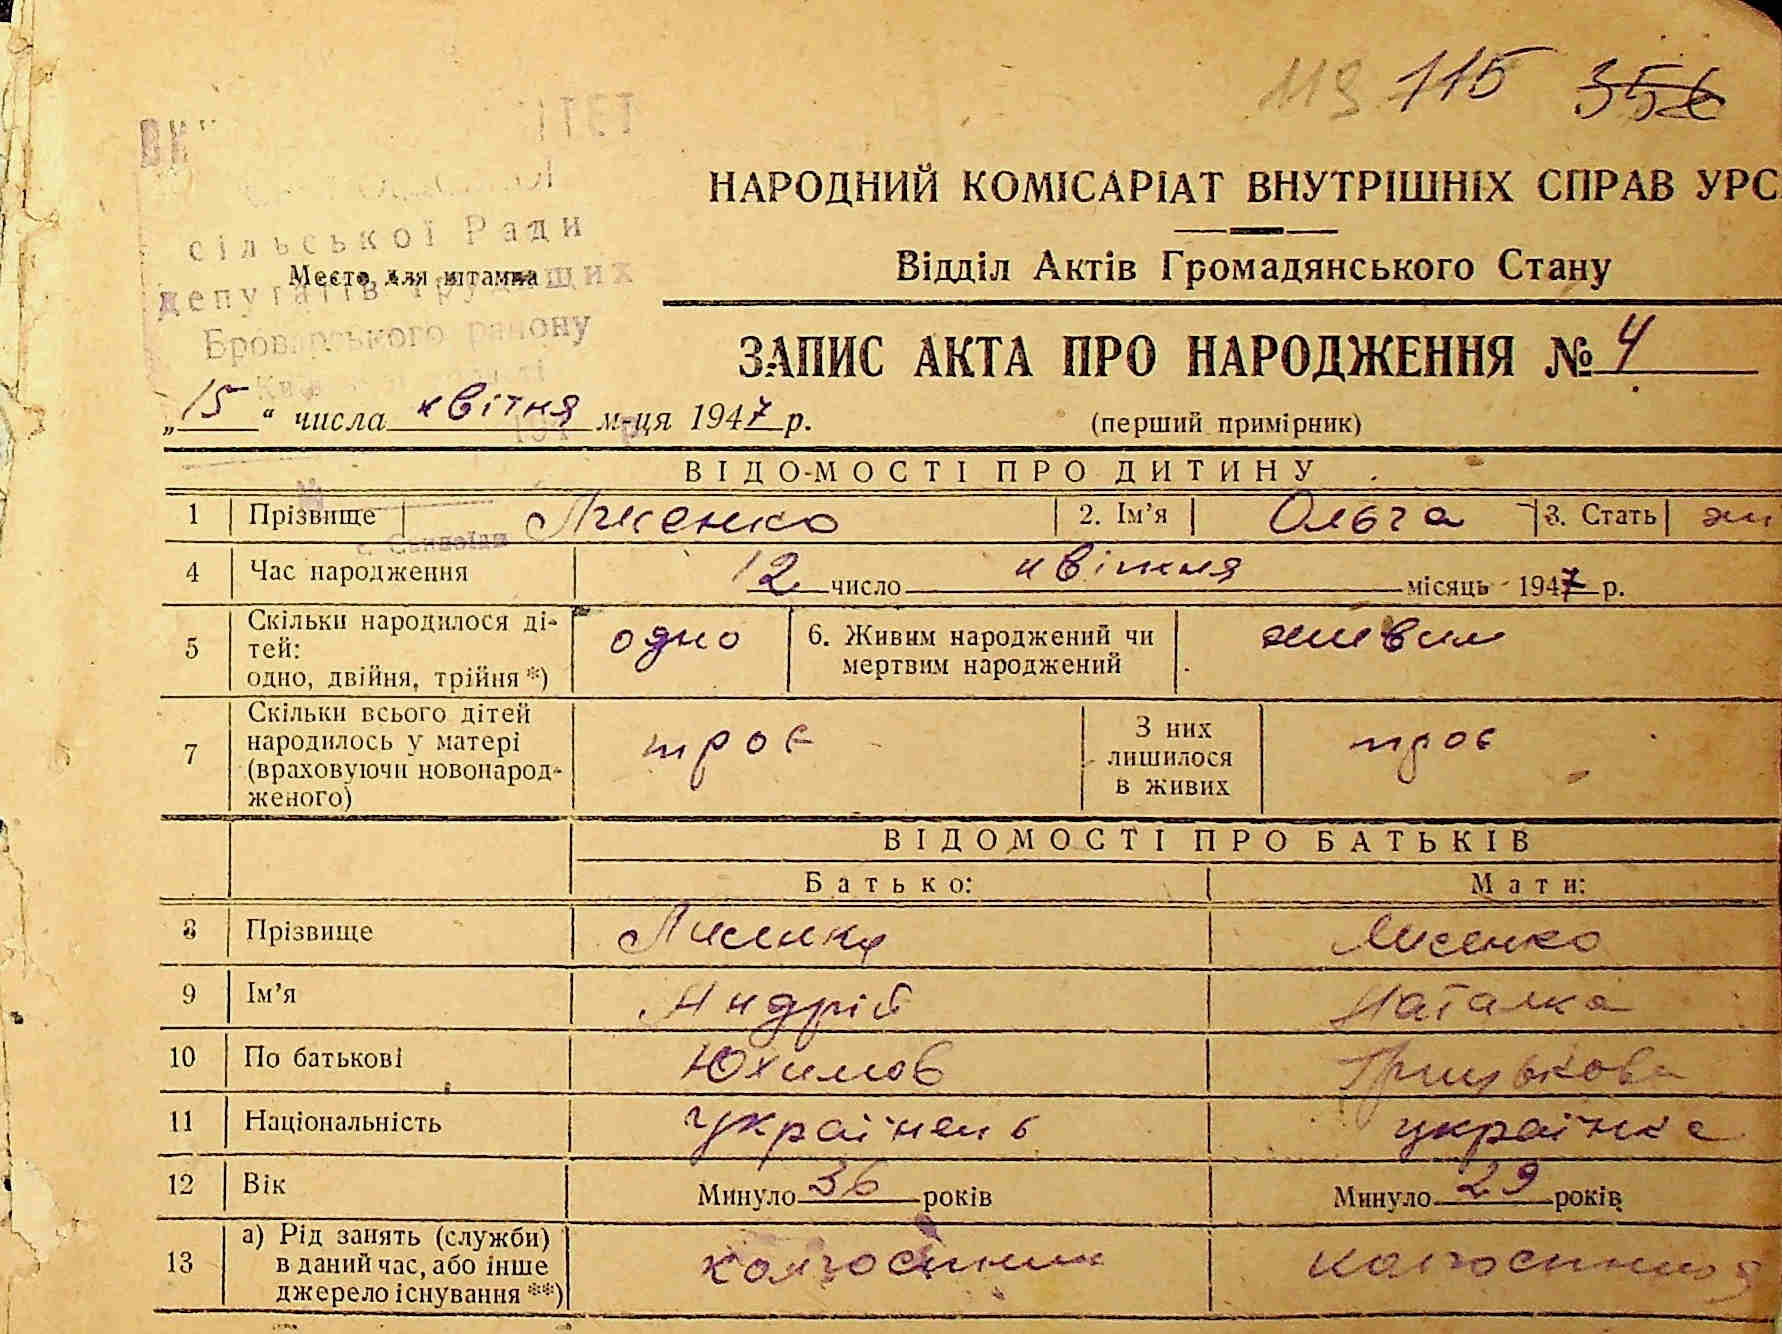 119 115 356
НАРОДНИЙ КОМІСАРІАТ ВНУТРІШНІХ СПРАВ УРС
сільської Ради
Место для штампа
депутатів трудящих
Відділ Актів Громадянського Стану
Броварського району
ЗАПИС АКТА ПРО НАРОДЖЕННЯ № 4
„15“ числа квітня м-ця 1947 р. (перший примірник)
ВІДОМОСТІ ПРО ДИТИНУ
1 Прізвище Лисенко 2. Ім’я Ольга 3. Стать жи
4 Час народження 12 число квітня місяць 1947 р.
5 Скільки народилося ді-
тей:
одно, двійня, трійня *) одно 6. Живим народжений чи
мертвим народжений живим
7 Скільки всього дітей
народилось у матері
(враховуючи новонарод-
женого) троє З них
лишилося
в живих троє
ВІДОМОСТІ ПРО БАТЬКІВ
Батько: Мати:
8 Прізвище Лисенко Лисенко
9 Ім’я Андрій Наталка
10 По батькові Юхимов Грицькова
11 Національність українець українка
12 Вік Минуло 36 років Минуло 29 років
13 а) Рід занять (служби)
в даний час, або інше
джерело існування **) колгоспник колгоспниця